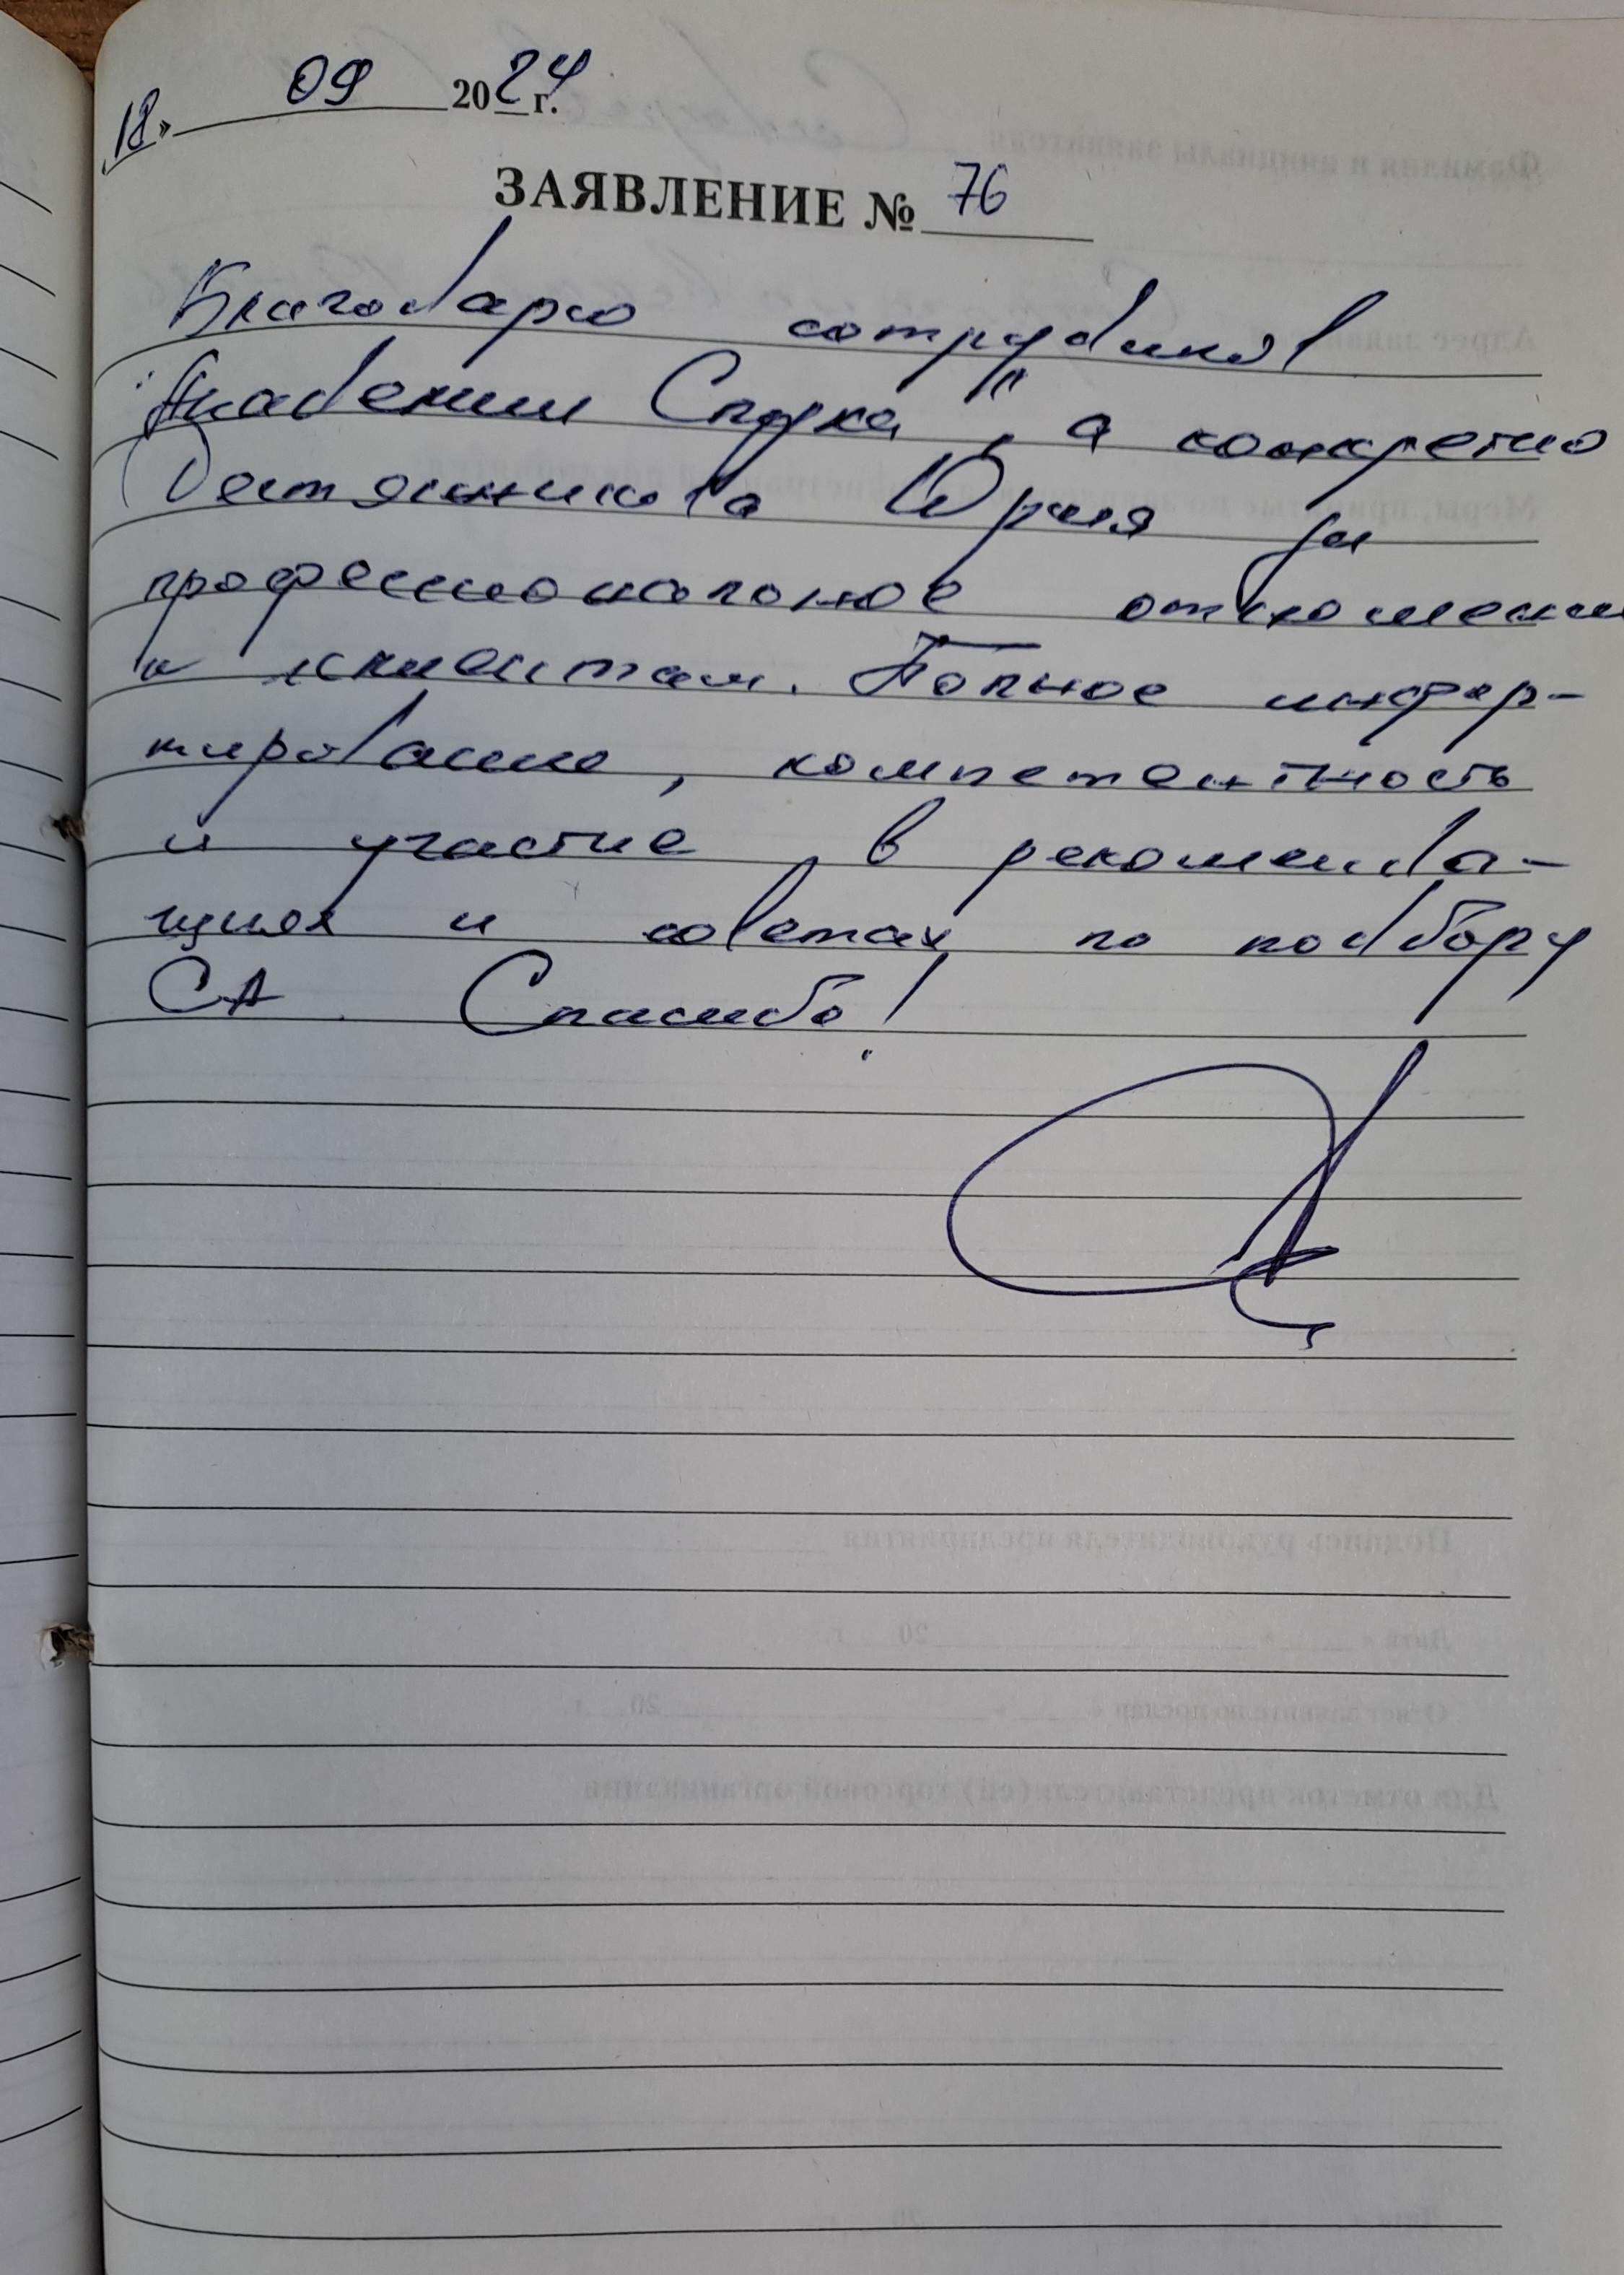 18» 09 2024 г.
ЗАЯВЛЕНИЕ № 76
Благодарю сотрудников
"Академии Слуха", а конкретно
Юрия за
профессиональное отношение
к клиентам. Полное инфор-
мирование, компетентность
и участие в рекоменда-
циях и советах по подбору
СА. Спасибо!